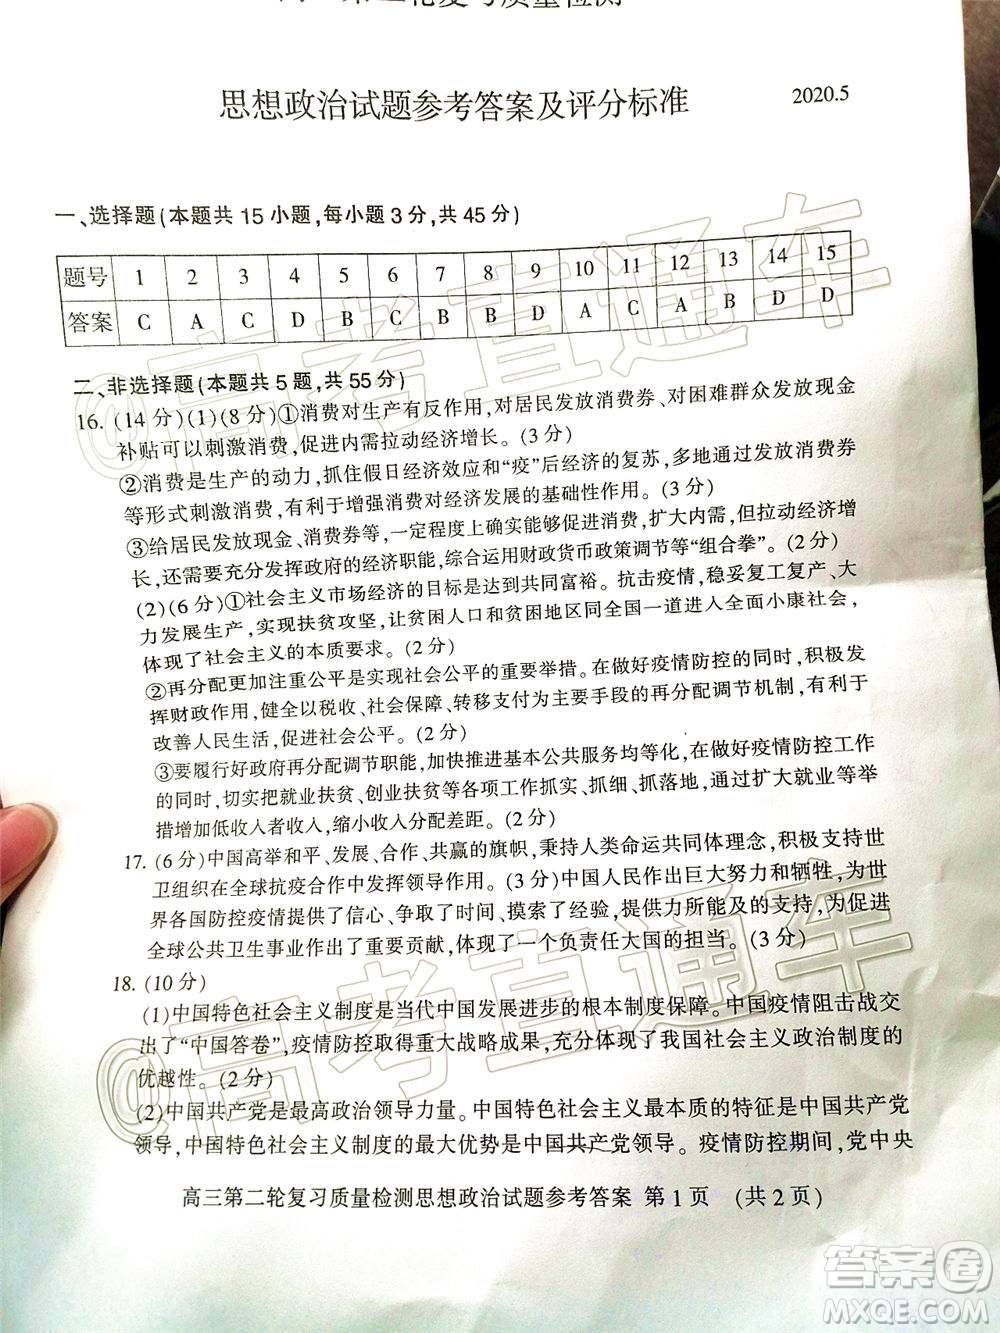 第二轮复习质量检测
思想政治试题参考答案及评分标准 2020.5
一、选择题(本题共 15 小题,每小题 3 分,共 45 分)
题号 1 2 3 4 5 6 7 8 9 10 11 12 13 14 15
答案 C A C D B C B B D A C A B D D
二、非选择题(本题共 5 题,共 55 分)
16. (14 分)(1)(8 分)①消费对生产有反作用,对居民发放消费券、对困难群众发放现金
补贴可以刺激消费,促进内需拉动经济增长。(3 分)
②消费是生产的动力,抓住假日经济效应和“疫”后经济的复苏,多地通过发放消费券
等形式刺激消费,有利于增强消费对经济发展的基础性作用。(3 分)
③给居民发放现金、消费券等,一定程度上确实能够促进消费,扩大内需,但拉动经济增
长,还需要充分发挥政府的经济职能,综合运用财政货币政策调节等“组合拳”。(2 分)
(2)(6 分)①社会主义市场经济的目标是达到共同富裕。抗击疫情,稳妥复工复产、大
力发展生产,实现扶贫攻坚,让贫困人口和贫困地区同全国一道进入全面小康社会,
体现了社会主义的本质要求。(2 分)
②再分配更加注重公平是实现社会公平的重要举措。在做好疫情防控的同时,积极发
挥财政作用,健全以税收、社会保障、转移支付为主要手段的再分配调节机制,有利于
改善人民生活,促进社会公平。(2 分)
③要履行好政府再分配调节职能,加快推进基本公共服务均等化,在做好疫情防控工作
的同时,切实把就业扶贫、创业扶贫等工作抓实、抓细、抓落地,通过扩大就业等举
措增加低收入者收入,缩小收入分配差距。(2 分)
17. (6 分)中国高举和平、发展、合作、共赢的旗帜,秉持人类命运共同体理念,积极支持世
卫组织在全球抗疫合作中发挥领导作用。(3 分)中国人民作出巨大努力和牺牲,为世
界各国防控疫情提供了信心、争取了时间、摸索了经验,提供力所能及的支持,为促进
全球公共卫生事业作出了重要贡献,体现了一个负责任大国的担当。(3 分)
18. (10 分)
(1)中国特色社会主义制度是当代中国发展进步的根本制度保障。中国疫情阻击战交
出了“中国答卷”,疫情防控取得重大战略成果,充分体现了我国社会主义政治制度的
优越性。(2 分)
(2)中国共产党是最高政治领导力量。中国特色社会主义最本质的特征是中国共产党
领导,中国特色社会主义制度的最大优势是中国共产党领导。疫情防控期间,党中央
高三第二轮复习质量检测思想政治试题参考答案 第 1 页 (共 2 页)
@高考直通车
@高考直通车
答案圈
MXQE.COM